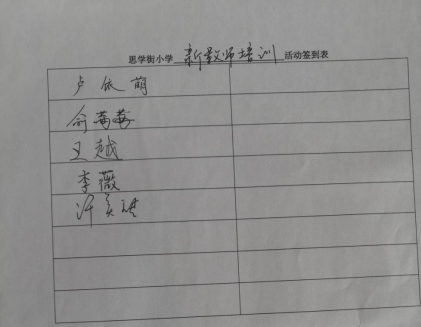 思学街小学 新教师培训 活动签到表
卢依萌
俞莓莓
王越
李薇